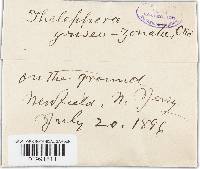 Thelephora
griseo-zonata, Cke
on the ground
Newfield, N. Jersey
July 20. 1896